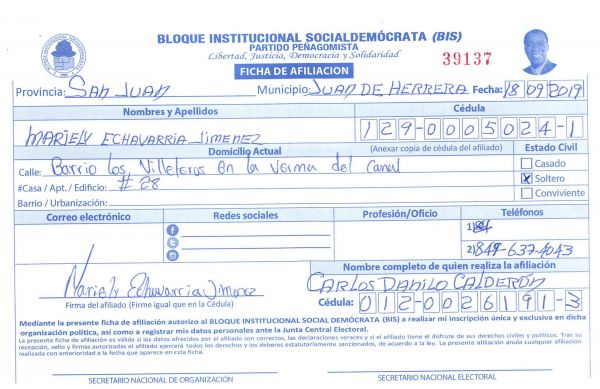 BLOQUE INSTITUCIONAL SOCIALDEMÓCRATA (BIS)
PARTIDO PEÑAGOMISTA
Libertad, Justicia, Democracia y Solidaridad
39137
FICHA DE AFILIACION
Provincia: SAN JUAN Municipio: JUAN DE HERRERA Fecha: 18 09 2019
Nombres y Apellidos Cédula
MARIELY ECHAVARRIA JIMENEZ 129-0005024-1
Domicilio Actual (Anexar copia de cédula del afiliado) Estado Civil
Calle: Barrio Los Villeteros en la Verma del Canal Casado
#Casa / Apt. / Edificio: # 28 X Soltero
Barrio / Urbanización: Conviviente
Correo electrónico Redes sociales Profesión/Oficio Teléfonos
1) 84
2) 849-637-4043
Nombre completo de quien realiza la afiliación
Mariely Echavarria Jimenez CARLOS DANILO CALDERÓN
Firma del afiliado (Firme igual que en la Cédula) Cédula: 012-0026191-3
Mediante la presente ficha de afiliación autorizo al BLOQUE INSTITUCIONAL SOCIAL DEMÓCRATA (BIS) a realizar mi inscripción única y exclusiva en dicha
organización política, así como a registrar mis datos personales ante la Junta Central Electoral.
La presente ficha de afiliación es válida si los datos ofrecidos por el afiliado son correctos, las declaraciones veraces y si el afiliado tiene el disfrute de sus derechos civiles y políticos. Tras su
recepción, sello y firmas autorizadas el afiliado ejercerá todos los derechos y los deberes estatutariamente sancionados, de acuerdo a la ley. La presente afiliación anula cualquier afiliación
realizada con anterioridad a la fecha que aparece en esta ficha.
SECRETARIO NACIONAL DE ORGANIZACIÓN SECRETARIO NACIONAL ELECTORAL